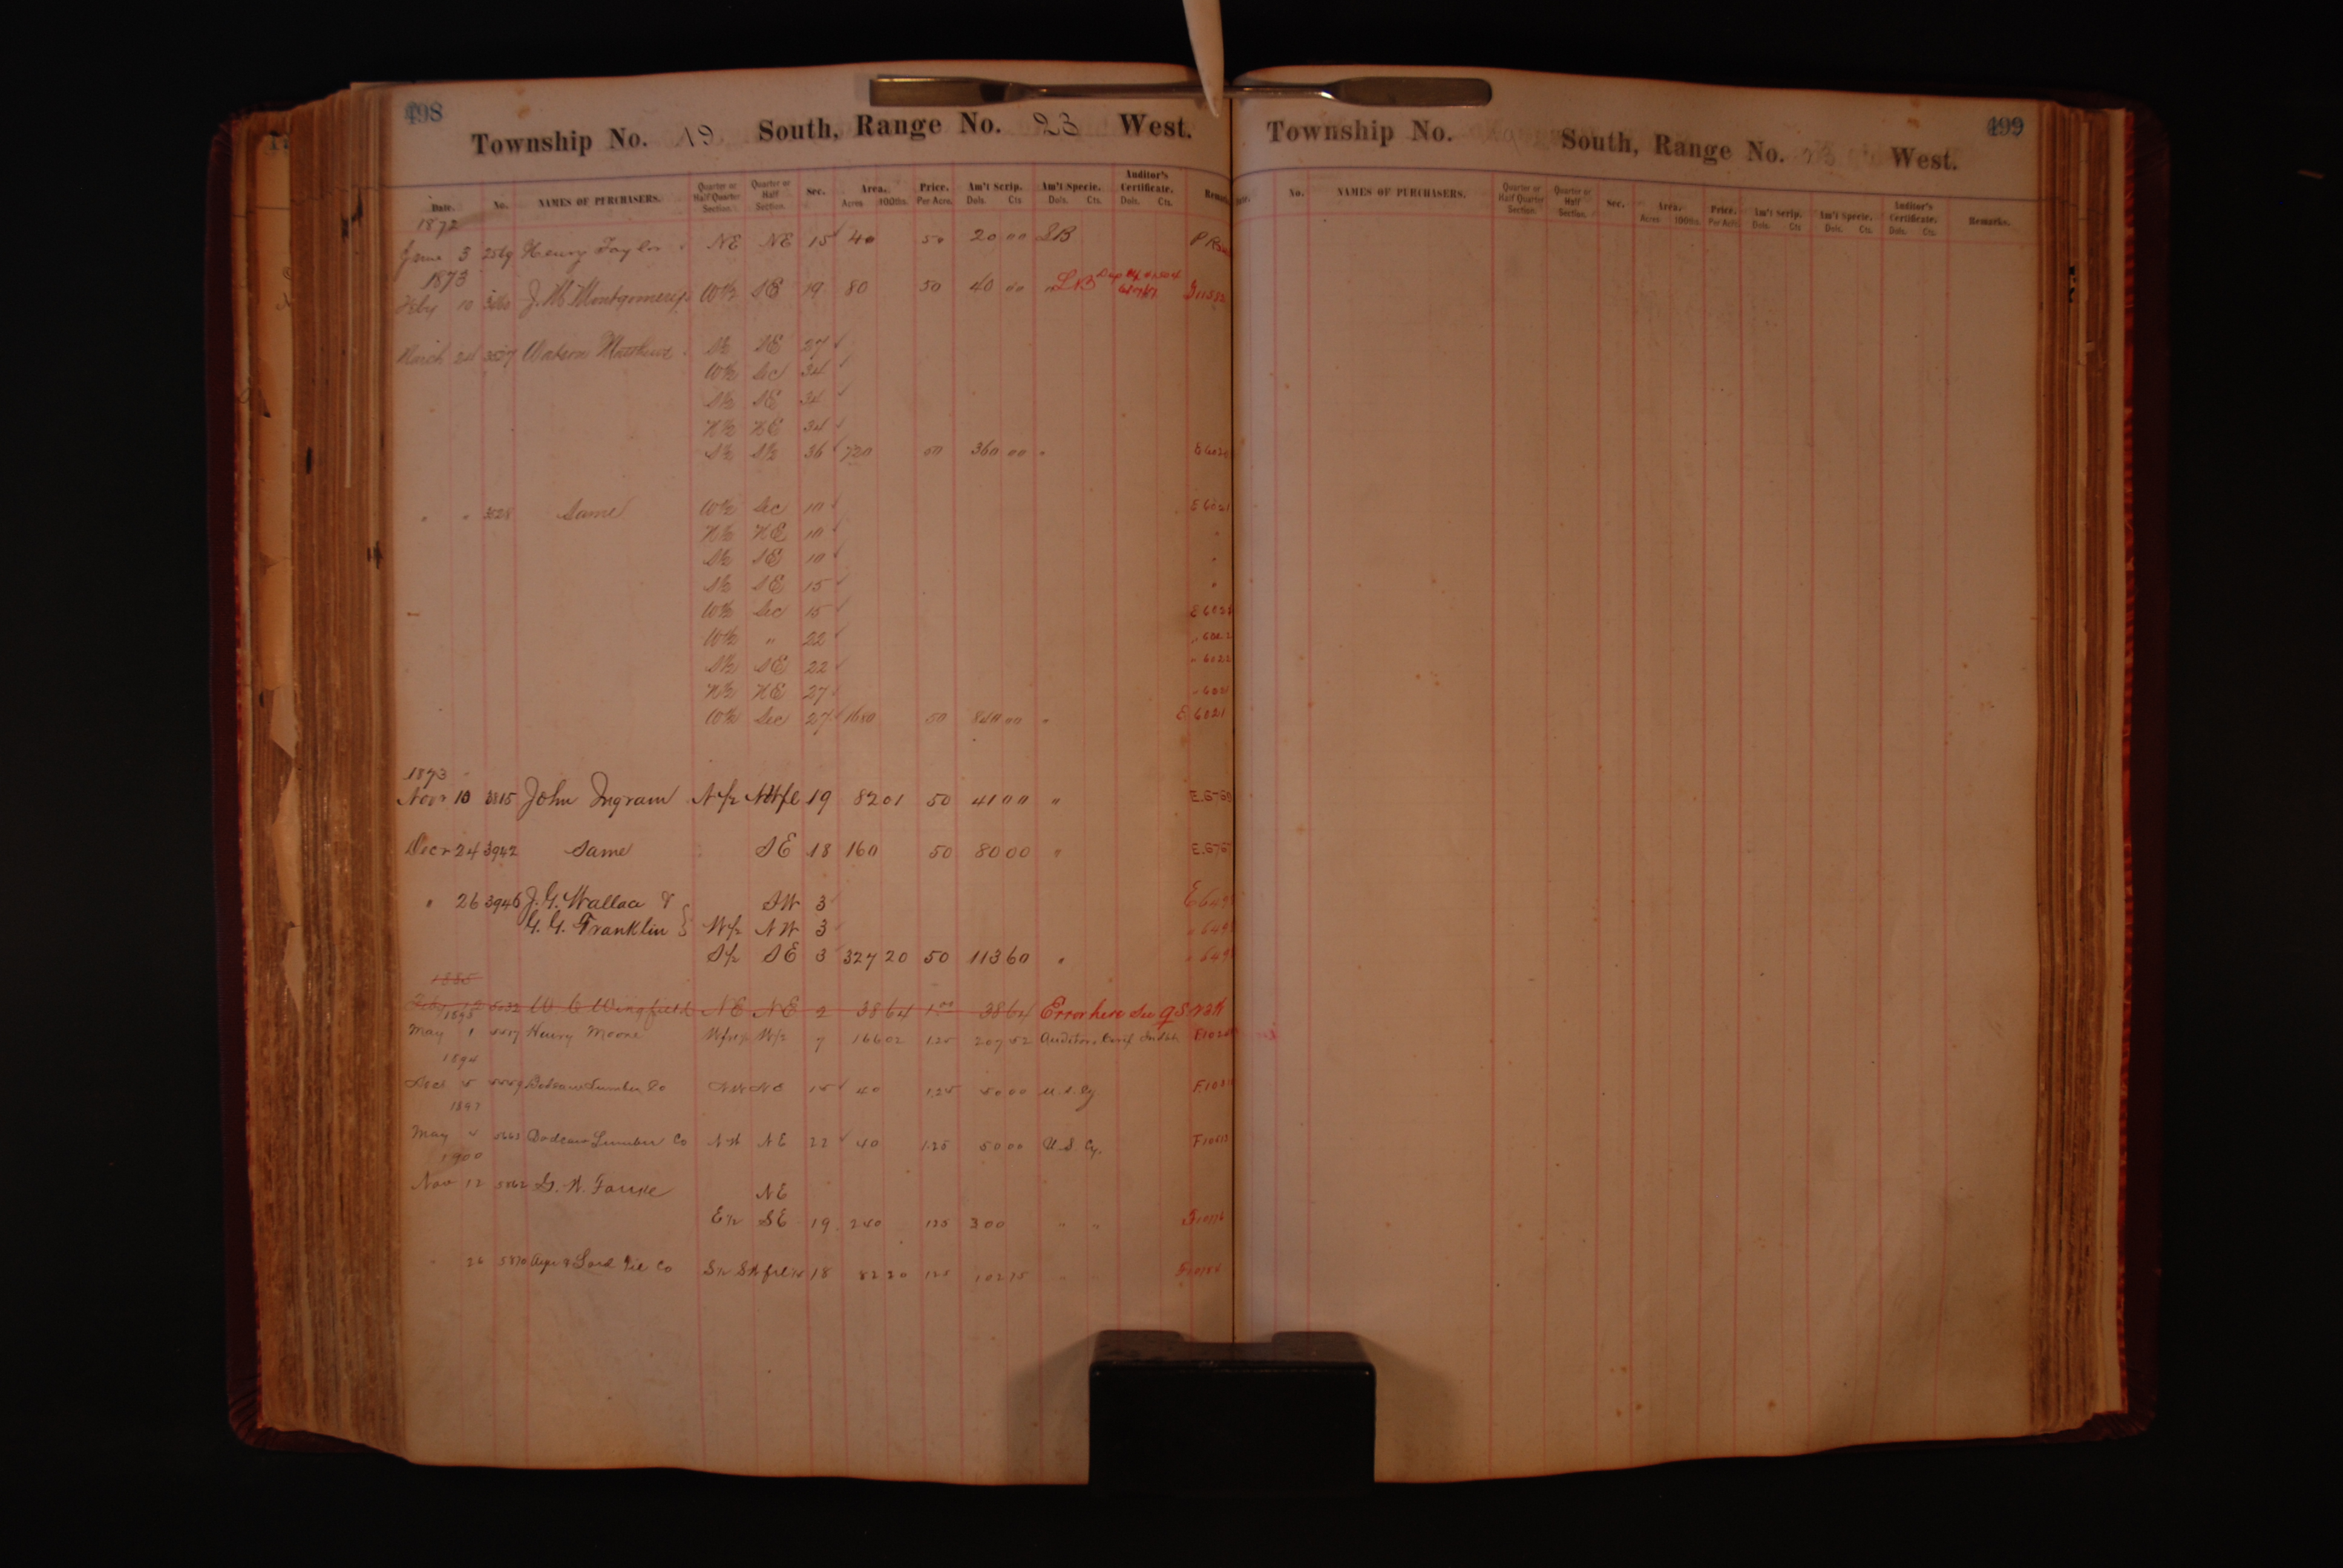 498
Township No. 19 South, Range No. 23 West.
Date. No. NAMES OF PURCHASERS. Quarter or Half Quarter Section. Quarter or Half Section. Sec. Area. Acres 100ths. Price. Per Acre. Am't Scrip. Dols. Cts Am't Specie. Dols. Cts. Auditor's Certificate. Dols. Cts. Remarks
1872
June 3 2569 Henry Taylor NE NE 15 40 50 20 00 SB
1873
Feby 10 J. M. Montgomery W½ SE 19 80 50 40 00 " SB
March 24 3527 Watson Matthews S½ SE 27
W½ Sec 34
S½ SE 34
N½ NE 34
S½ S½ 36 720 50 360 00 " E 6021
" " 3528 Same W½ Sec 10 E 6021
N½ NE 10 "
S½ SE 10 "
S½ SE 15 "
W½ Sec 15
W½ " 22
S½ SE 22 " 6022
N½ NE 27 " 6021
W½ Sec 27 1680 50 840 00 " E 6021
1873
Novr 10 3815 John Ingram N½ NW fl 19 82 01 50 41 00 "
Decr 24 3942 Same SE 18 160 50 80 00 "
" 26 3946 J. G. Wallace & SW 3
G. G. Franklin W½ NW 3
S½ SE 3 327 20 50 113 60 "
1885
Feby 12 5032 W C Wingfield NE NE 2 38 64 1 00 38 64 Error here See 9 S
1893
May 1 Henry Moore W½ 7 166 02 1.25 207 52
1894
Dec 5 5559 Bodcaw Lumber Co NW NE 15 40 1.25 50 00 U. S. Cy
1897
May 4 5663 Bodcaw Lumber Co NW NE 22 40 1.25 50 00 U. S. Cy.
1900
Nov 12 5862 G. W. Fouke NE
E½ SE 19 240 125 300 " "
" 26 5870 S½ SW frl ¼ 18 82 20 125 102 75 " "
499
Township No. South, Range No. West.
Date. No. NAMES OF PURCHASERS. Quarter or Half Quarter Section. Quarter or Half Section. Sec. Area. Acres 100ths. Price. Per Acre. Am't Scrip. Dols. Cts Am't Specie. Dols. Cts. Auditor's Certificate. Dols. Cts. Remarks.